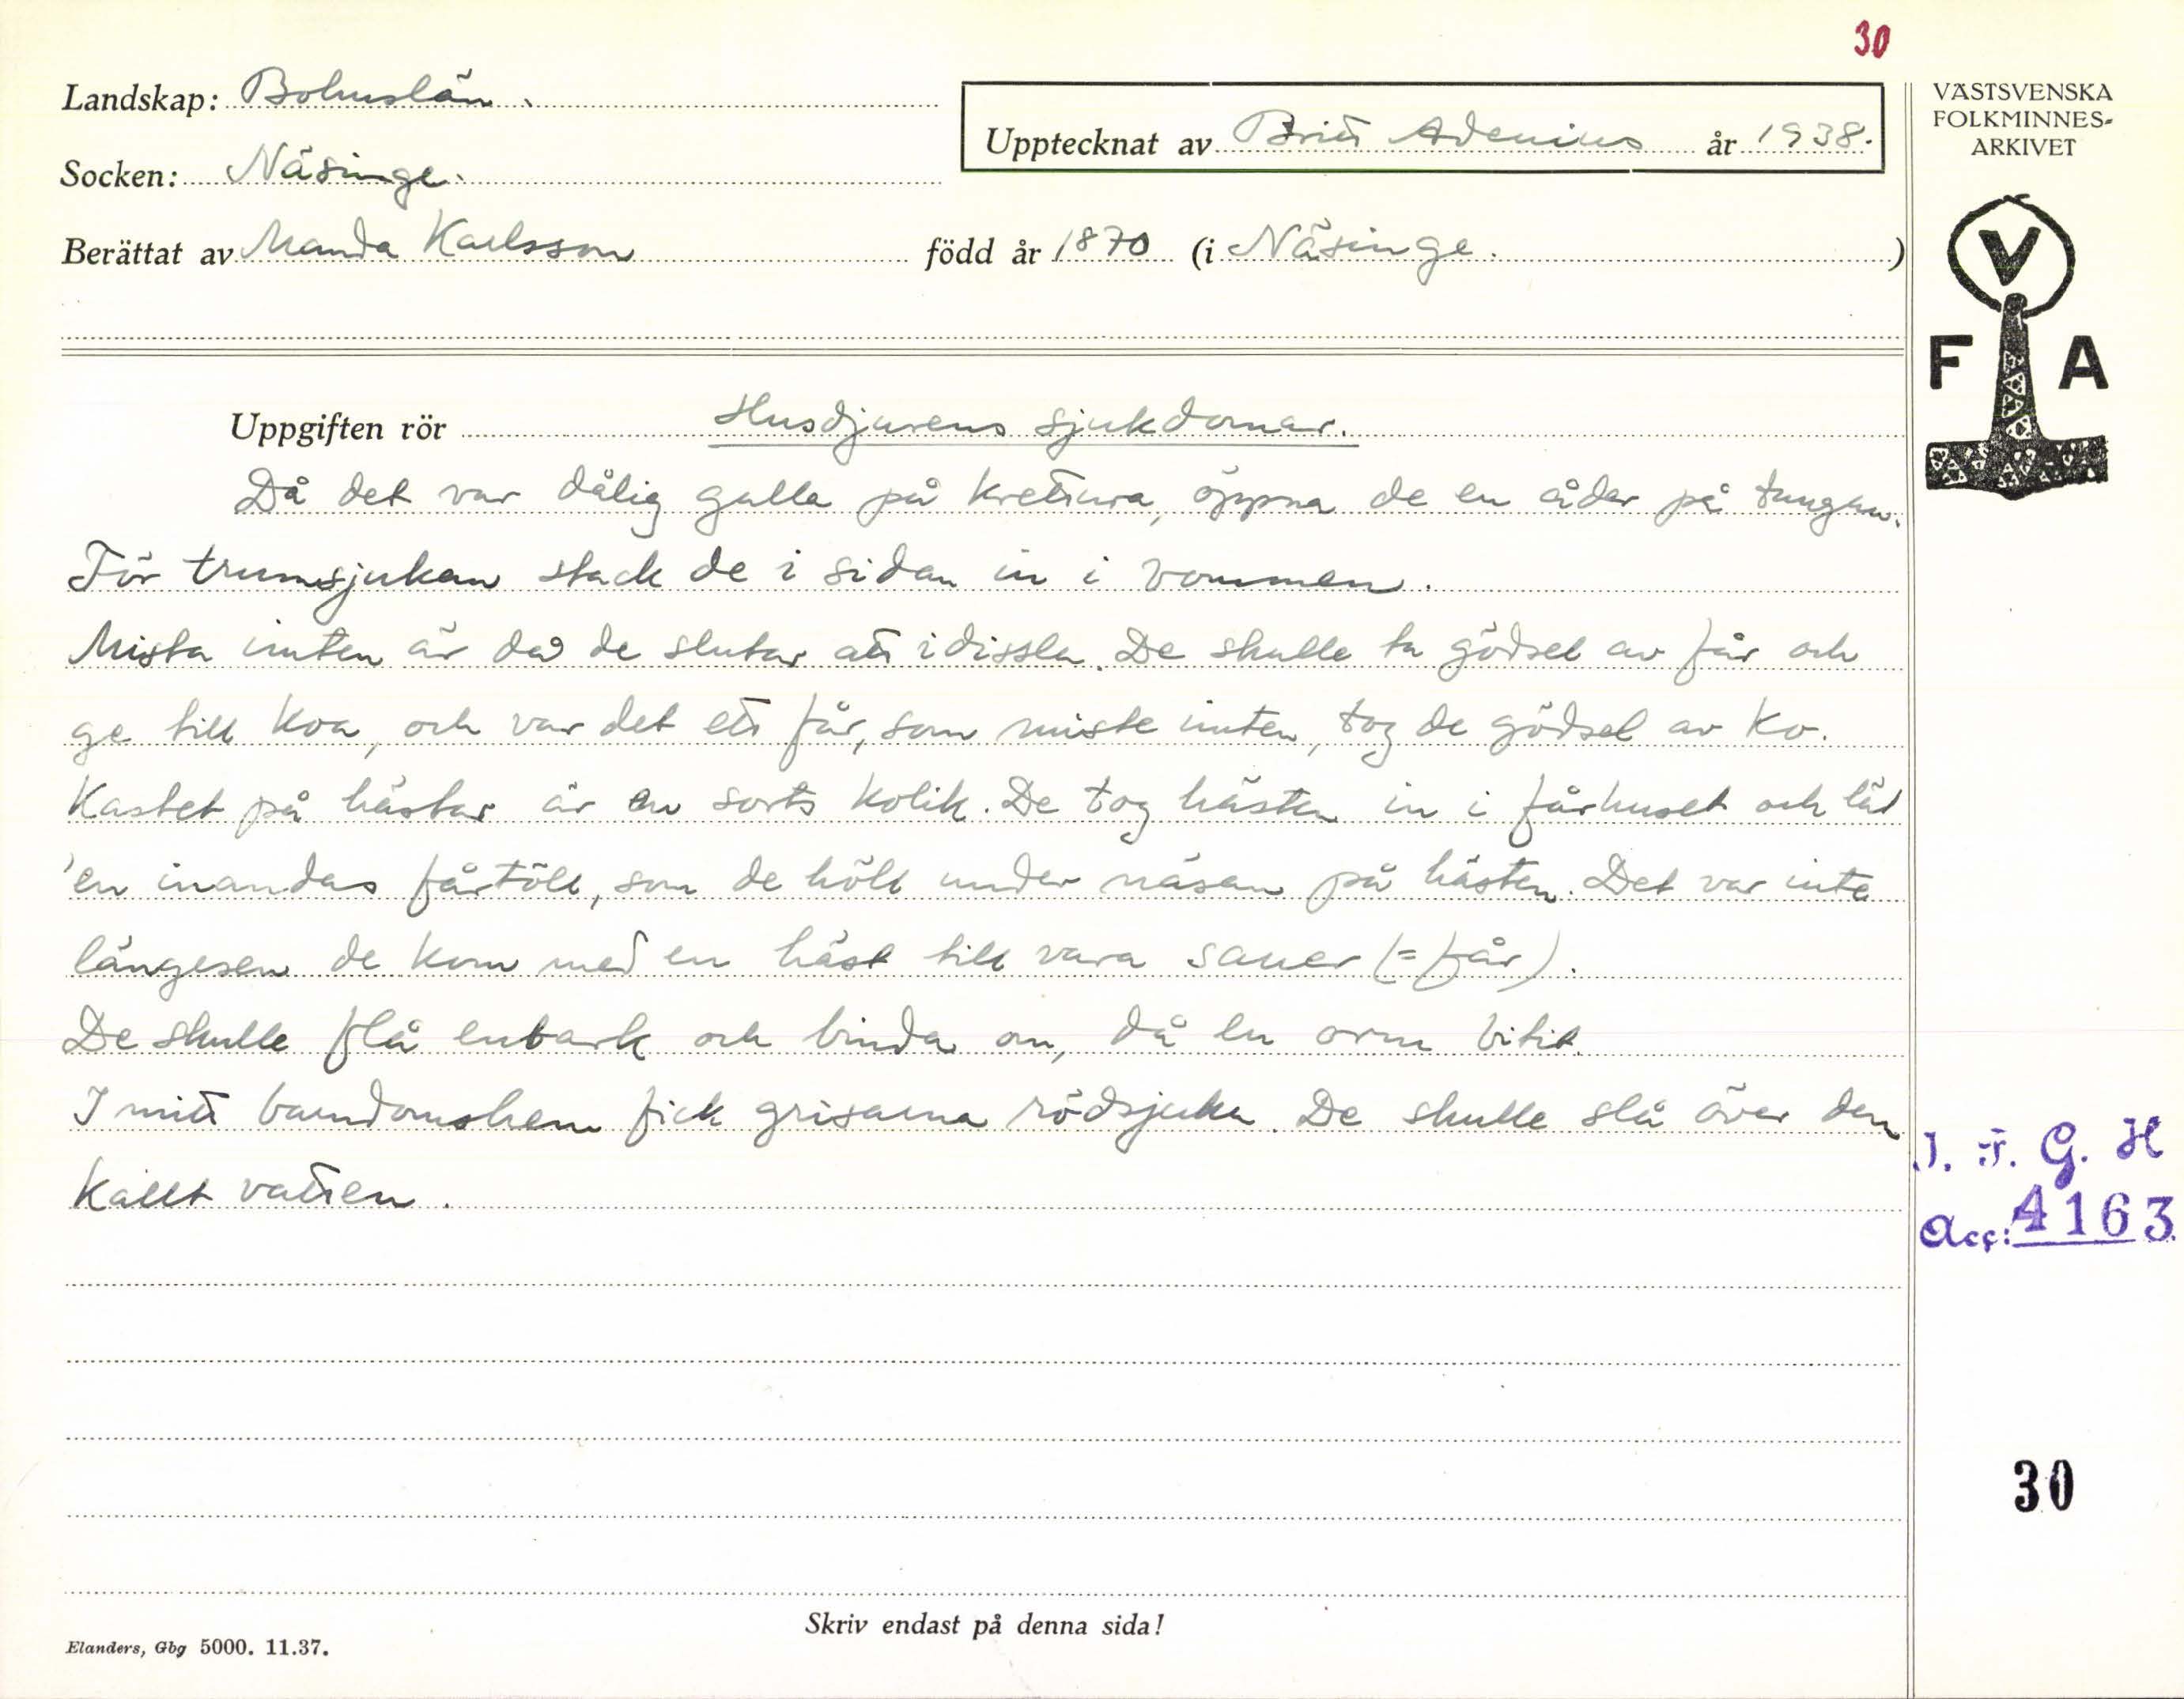 30
Landskap: Bohuslän.
VÄSTSVENSKA
FOLKMINNES-
ARKIVET
Upptecknat av Britt Adenius år 1938.
Socken: Näsinge.
Berättat av Manda Karlsson född år 1870 (i Näsinge.)
V
F A
Uppgiften rör Husdjurens sjukdomar.
Då det var dålig galla på kretura, öppna de en åder på tungan.
För trumsjukan stack de i sidan in i vommen.
Mista imten är då de slutar att idissla. De skulle ta gödsel av får och
ge till koa, och var det ett får, som miste imten, tog de gödsel av ko.
Kastet på hästar är en sorts kolik. De tog hästen in i fårhuset och låt
'en inandas fårtöll, som de höll under näsan på hästen. Det var inte
längesen de kom med en häst till vara sauer (= får).
De skulle flå enbark och binda om, då en orm bitit.
I mitt barndomshem fick grisarna rödsjuka. De skulle slå över den
kallt vatten.
I. F. G. H
Acc: 4163
30
Skriv endast på denna sida!
Elanders, Gbg 5000. 11.37.